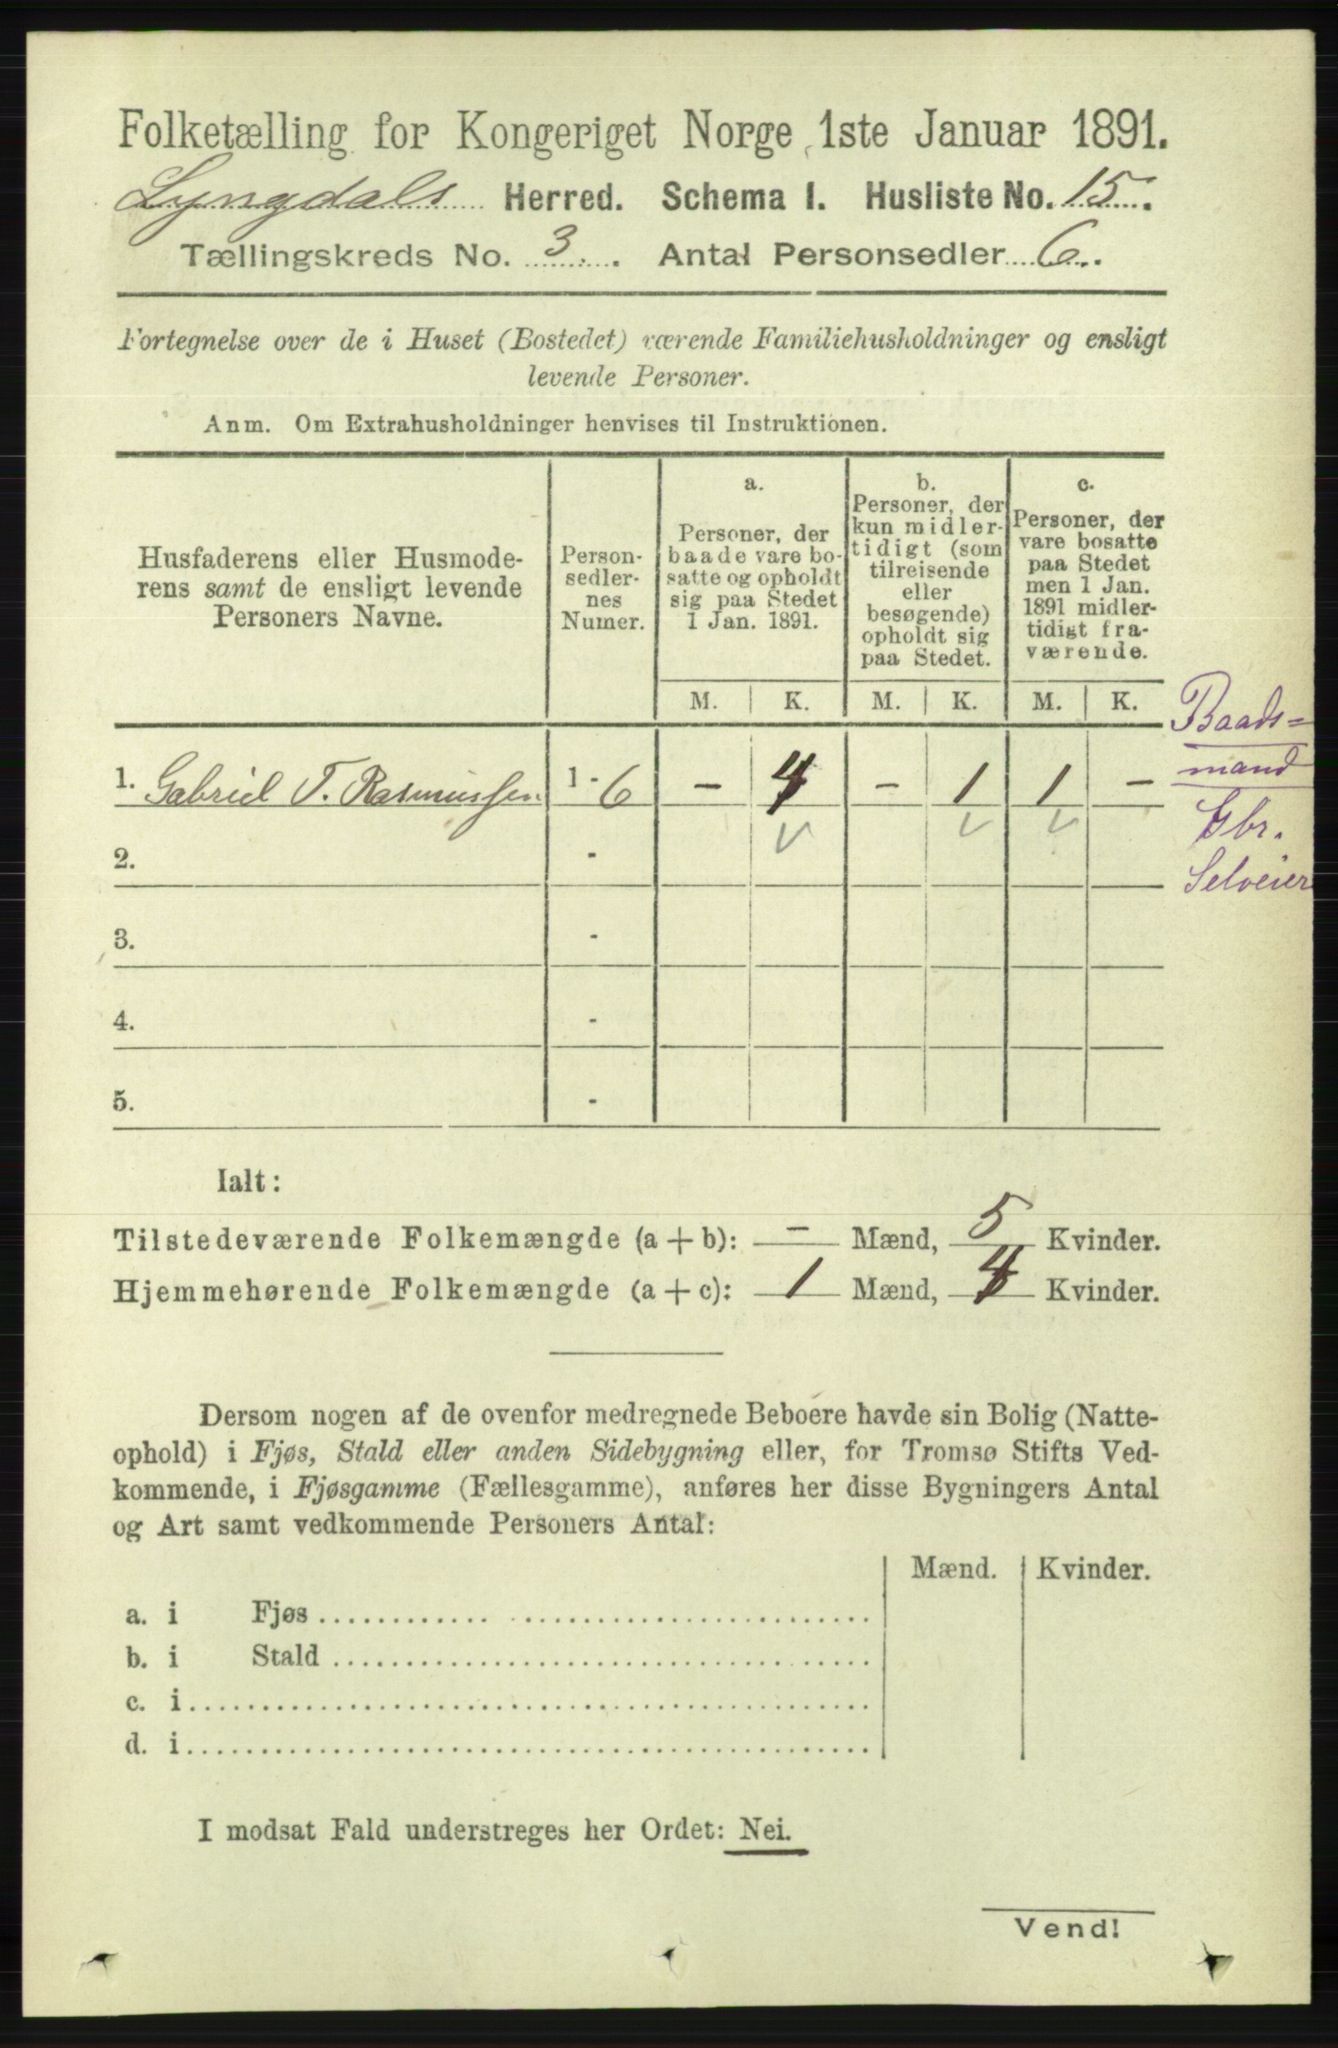 Folketælling for Kongeriget Norge 1ste Januar 1891.
Lyngdals Herred. Schema I. Husliste No. 15.
Tællingskreds No. 3. Antal Personsedler 6.
Fortegnelse over de i Huset (Bostedet) værende Familiehusholdninger og ensligt
levende Personer.
Anm. Om Extrahusholdninger henvises til Instruktionen.
Husfaderens eller Husmode-
rens samt de ensligt levende
Personers Navne.
Person-
sedler-
nes
Numer.
a.
Personer, der
baade vare bo-
satte og opholdt
sig paa Stedet
1 Jan. 1891.
b.
Personer, der
kun midler-
tidigt (som
tilreisende
eller
besøgende)
opholdt sig
paa Stedet.
c.
Personer, der
vare bosatte
paa Stedet
men 1 Jan.
1891 midler-
tidigt fra-
værende.
M. K. M. K. M. K.
1. Gabriel T. Rasmussen 1 - 6 - 4 - 1 1 -
Baads-
mand
Gbr.
Selveier
2. -
3. -
4. -
5. -
Ialt:
Tilstedeværende Folkemængde (a + b): - Mænd, 5 Kvinder.
Hjemmehørende Folkemængde (a + c): 1 Mænd, 4 Kvinder.
Dersom nogen af de ovenfor medregnede Beboere havde sin Bolig (Natte-
ophold) i Fjøs, Stald eller anden Sidebygning eller, for Tromsø Stifts Ved-
kommende, i Fjøsgamme (Fællesgamme), anføres her disse Bygningers Antal
og Art samt vedkommende Personers Antal:
Mænd. Kvinder.
a. i Fjøs
b. i Stald
c. i
d. i
I modsat Fald understreges her Ordet: Nei.
Vend!